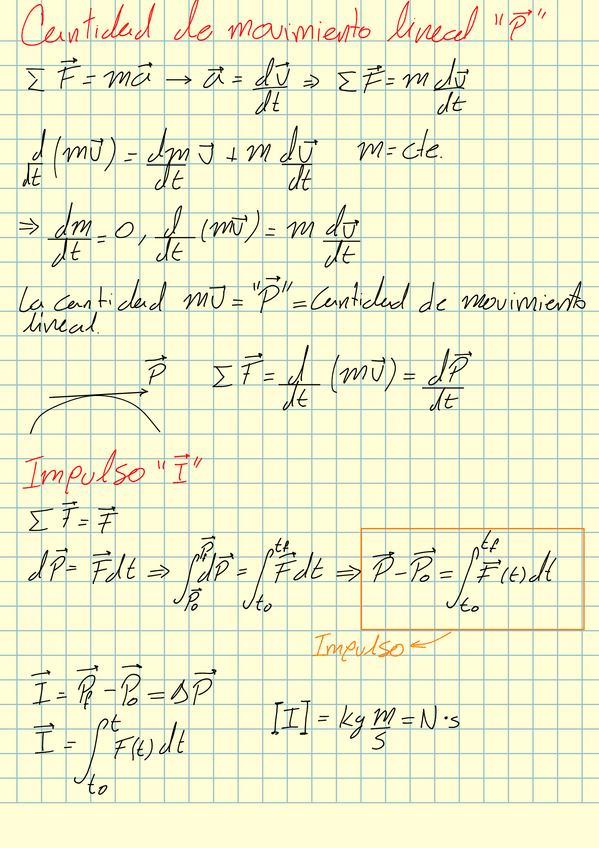 Cantidad de movimiento lineal "P⃗"
Σ F⃗ = ma⃗ → a⃗ = dv⃗/dt ⇒ Σ F⃗ = m dv⃗/dt
d/dt (mv⃗) = dm/dt v⃗ + m dv⃗/dt m = cte.
⇒ dm/dt = 0, d/dt (mv⃗) = m dv⃗/dt
La cantidad mv⃗ = "P⃗" = Cantidad de movimiento
lineal.
P⃗ Σ F⃗ = d/dt (mv⃗) = dP⃗/dt
Impulso "I⃗"
Σ F⃗ = F⃗
dP⃗ = F⃗dt ⇒ ∫_{P⃗o}^{P⃗} dP⃗ = ∫_{to}^{tf} F⃗dt ⇒ P⃗ - P⃗o = ∫_{to}^{tf} F⃗(t)dt
Impulso ←
I⃗ = P⃗f - P⃗o = ΔP⃗
I⃗ = ∫_{to}^{t} F(t)dt
[I] = kg m/s = N·s